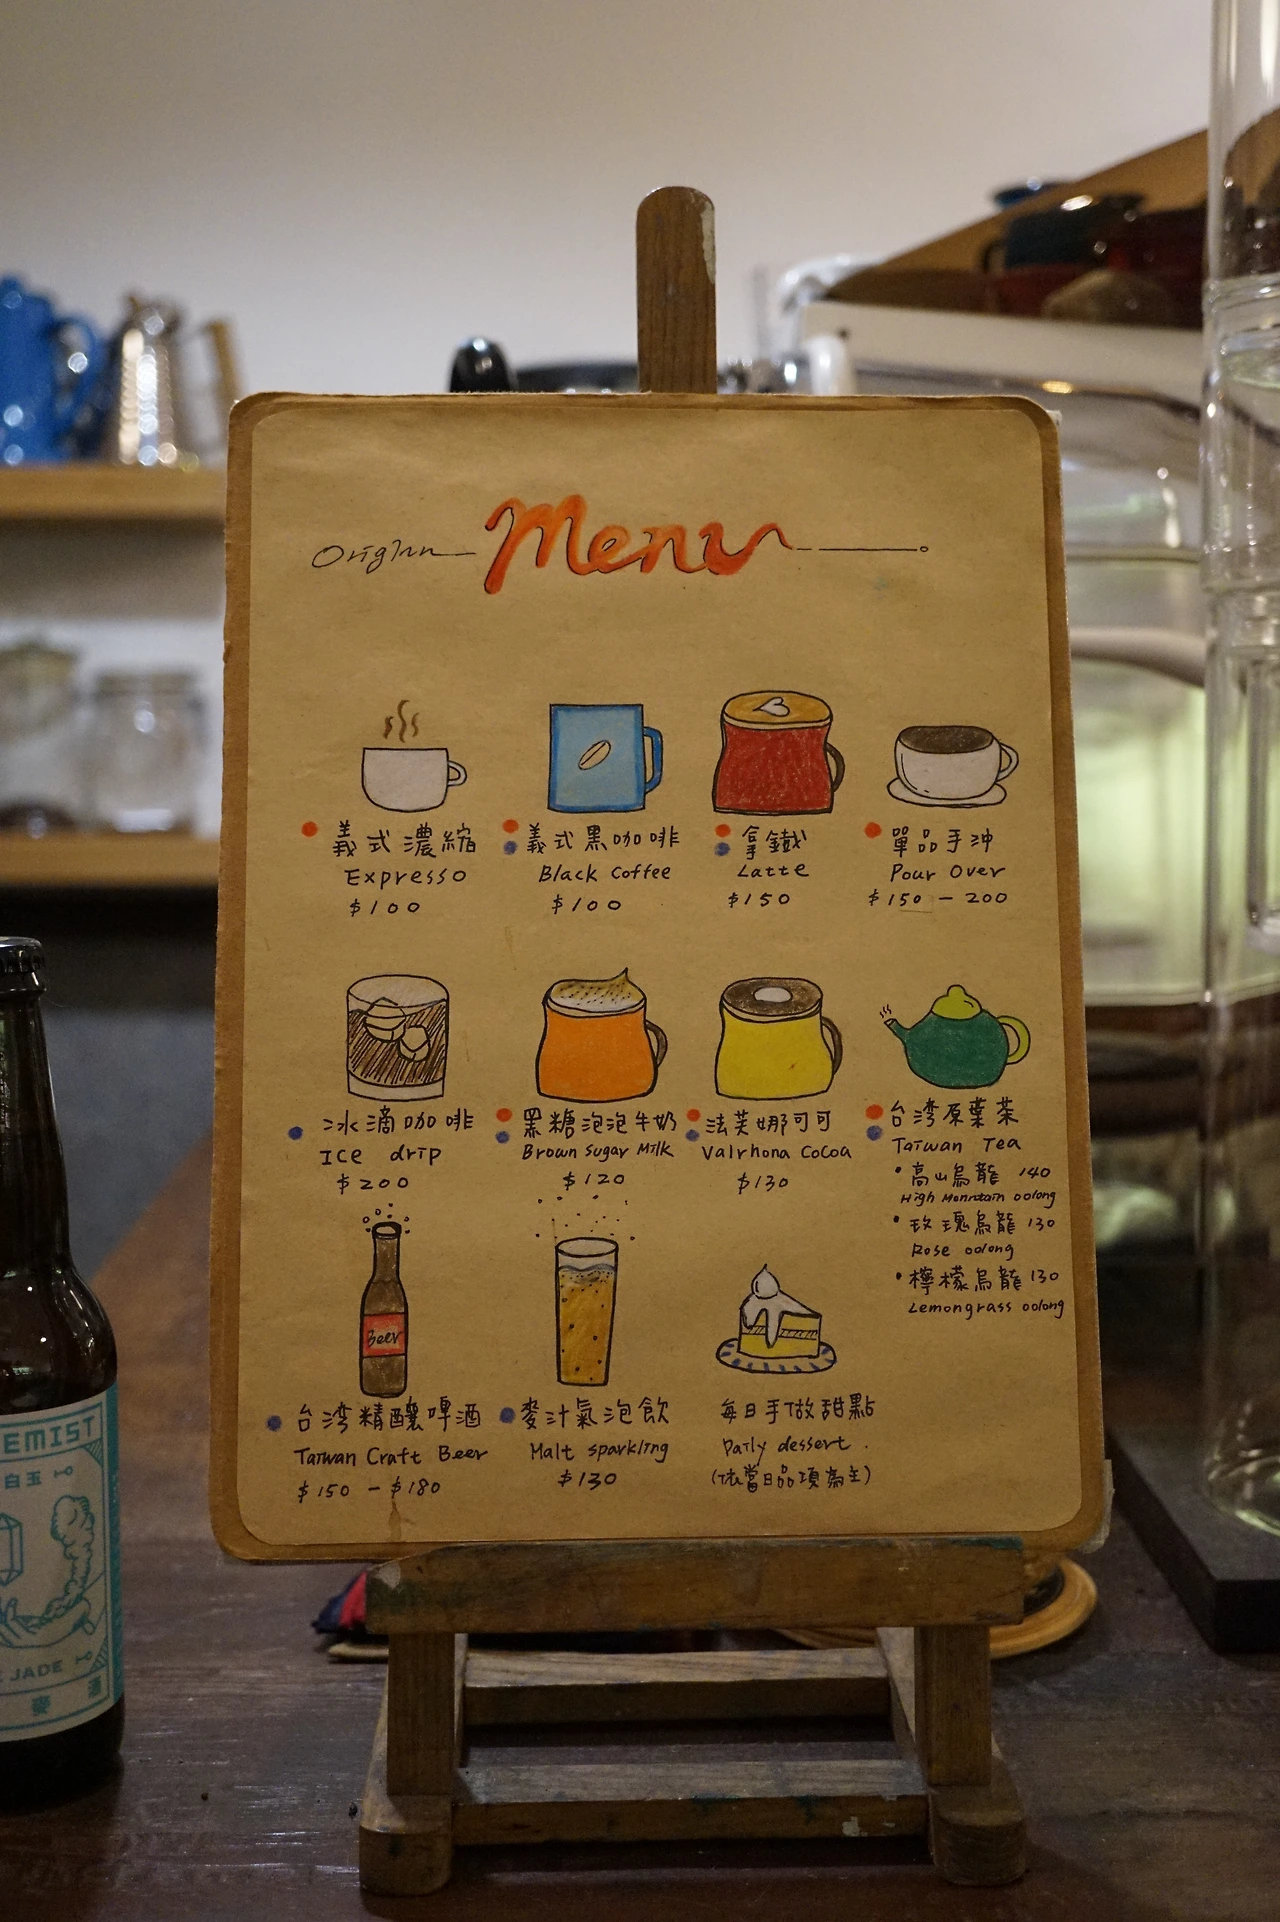 OrigInn Menu
義式濃縮
Expresso
$100
義式黑咖啡
Black Coffee
$100
拿鐵
Latte
$150
單品手沖
Pour Over
$150 - 200
冰滴咖啡
Ice drip
$200
黑糖泡泡牛奶
Brown Sugar Milk
$120
法芙娜可可
Valrhona Cocoa
$130
台湾原葉茶
Taiwan Tea
• 高山烏龍 140
High Mountain oolong
• 玫瑰烏龍 130
Rose oolong
• 檸檬烏龍 130
Lemongrass oolong
Beer
台湾精釀啤酒
Taiwan Craft Beer
$150 - $180
麥汁氣泡飲
Malt sparkling
$130
每日手做甜點
Daily dessert
(依當日品項為主)
EMIST
白玉
JADE
麥酒